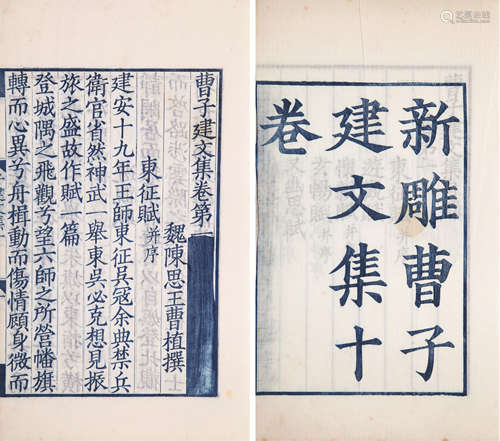 新雕曹子
建文集十
卷
曹子建文集卷第一
魏陳思王曹植撰
東征賦并序
建安十九年王師東征吳寇余典禁兵
衛官省然神武一舉東吳必克想見振
旅之盛故作賦一篇
登城隅之飛觀兮望六師之所營幡旗
轉而心異兮舟楫動而傷情顧身微而